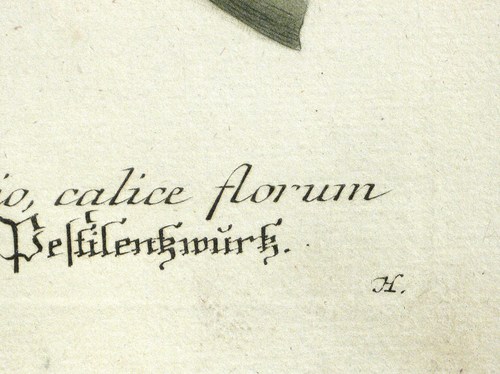 io, calice florum
Pestilentzwürtz.
H.